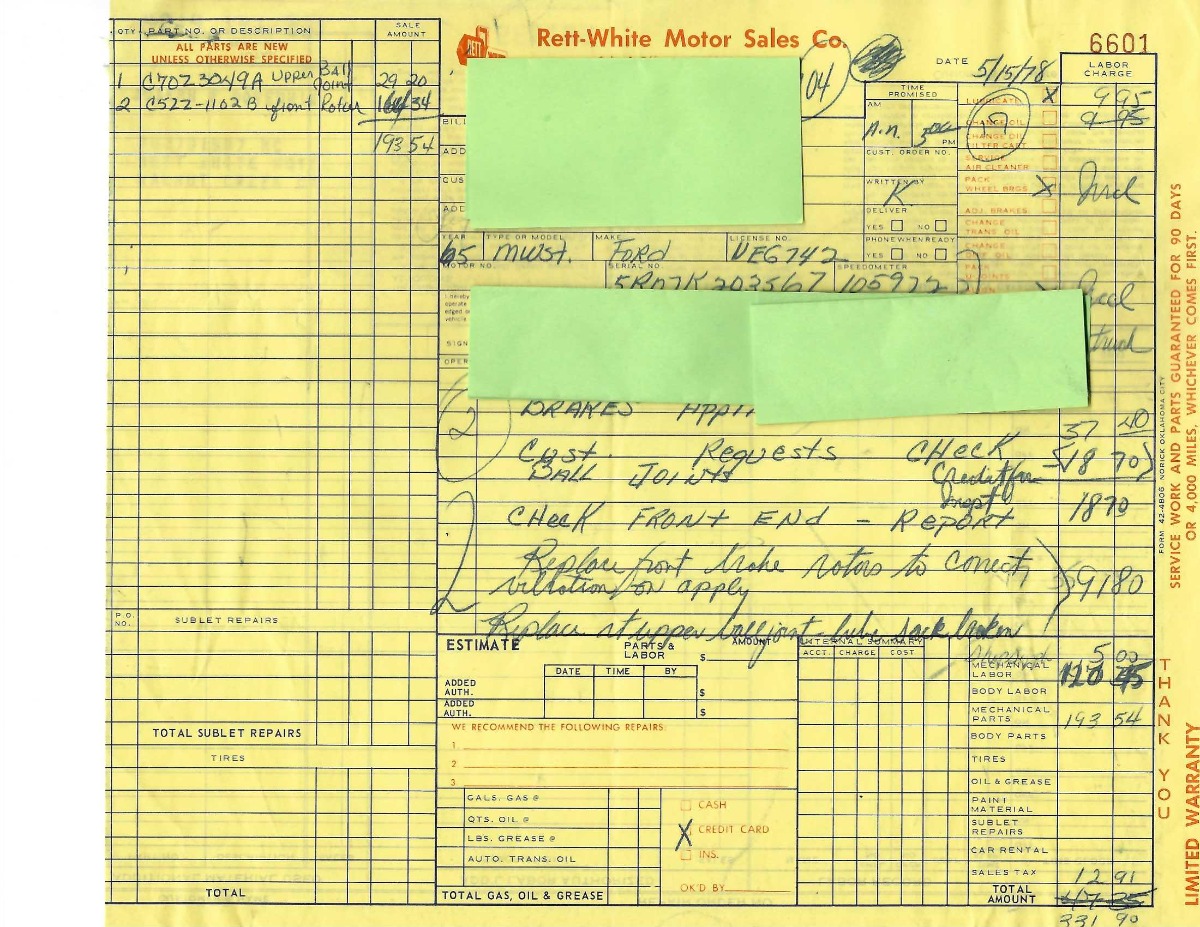 Rett-White Motor Sales Co.
6601
DATE 5/15/78
QTY. PART NO. OR DESCRIPTION SALE AMOUNT
ALL PARTS ARE NEW
UNLESS OTHERWISE SPECIFIED
1 C7OZ3049A Upper Ball Joint 29 20
2 C5ZZ-1102B front Rotor 164 34
193 54
P.O. NO. SUBLET REPAIRS
TOTAL SUBLET REPAIRS
TIRES
TOTAL
04
TIME PROMISED
AM PM
CUST. ORDER NO.
WRITTEN BY K
DELIVER
YES NO
PHONE WHEN READY
YES NO
LABOR CHARGE
LUBRICATE X 9 95
CHANGE OIL 9 95
CHANGE OIL FILTER CART
SERVICE AIR CLEANER
PACK WHEEL BRGS X Incl
ADJ. BRAKES
CHANGE TRANS. OIL
CHANGE
BILL
ADD
CUS
ADD
YEAR TYPE OR MODEL MAKE LICENSE NO.
65 MUST. FORD VEG742
MOTOR NO. SERIAL NO. SPEEDOMETER
5R07K203567 105972
I hereby
operate
vehicle
SIGN
OPER
BRAKES APPl
37 40
Cust. Requests CHeck
BALL JOINTS
Credit for
Inspt
18 70
1870
CHeck FRONt END - REPORT
Replace front brake rotors to correct
vibration on apply
9180
Replace upper balljoint lube sack broken
ESTIMATE PARTS & LABOR AMOUNT $
DATE TIME BY
ADDED AUTH. $
ADDED AUTH. $
WE RECOMMEND THE FOLLOWING REPAIRS:
1
2
3
GALS. GAS @
QTS. OIL @
LBS. GREASE @
AUTO. TRANS. OIL
TOTAL GAS, OIL & GREASE
CASH
X CREDIT CARD
INS.
OK'D BY
INTERNAL SUMMARY
ACCT. CHARGE COST
5 00
MECHANICAL LABOR 120 45
BODY LABOR
MECHANICAL PARTS 193 54
BODY PARTS
TIRES
OIL & GREASE
PAINT MATERIAL
SUBLET REPAIRS
CAR RENTAL
SALES TAX 12 91
TOTAL AMOUNT
331 90
FORM 42-480G NORICK OKLAHOMA CITY
SERVICE WORK AND PARTS GUARANTEED FOR 90 DAYS
OR 4,000 MILES, WHICHEVER COMES FIRST.
THANK YOU
LIMITED WARRANTY